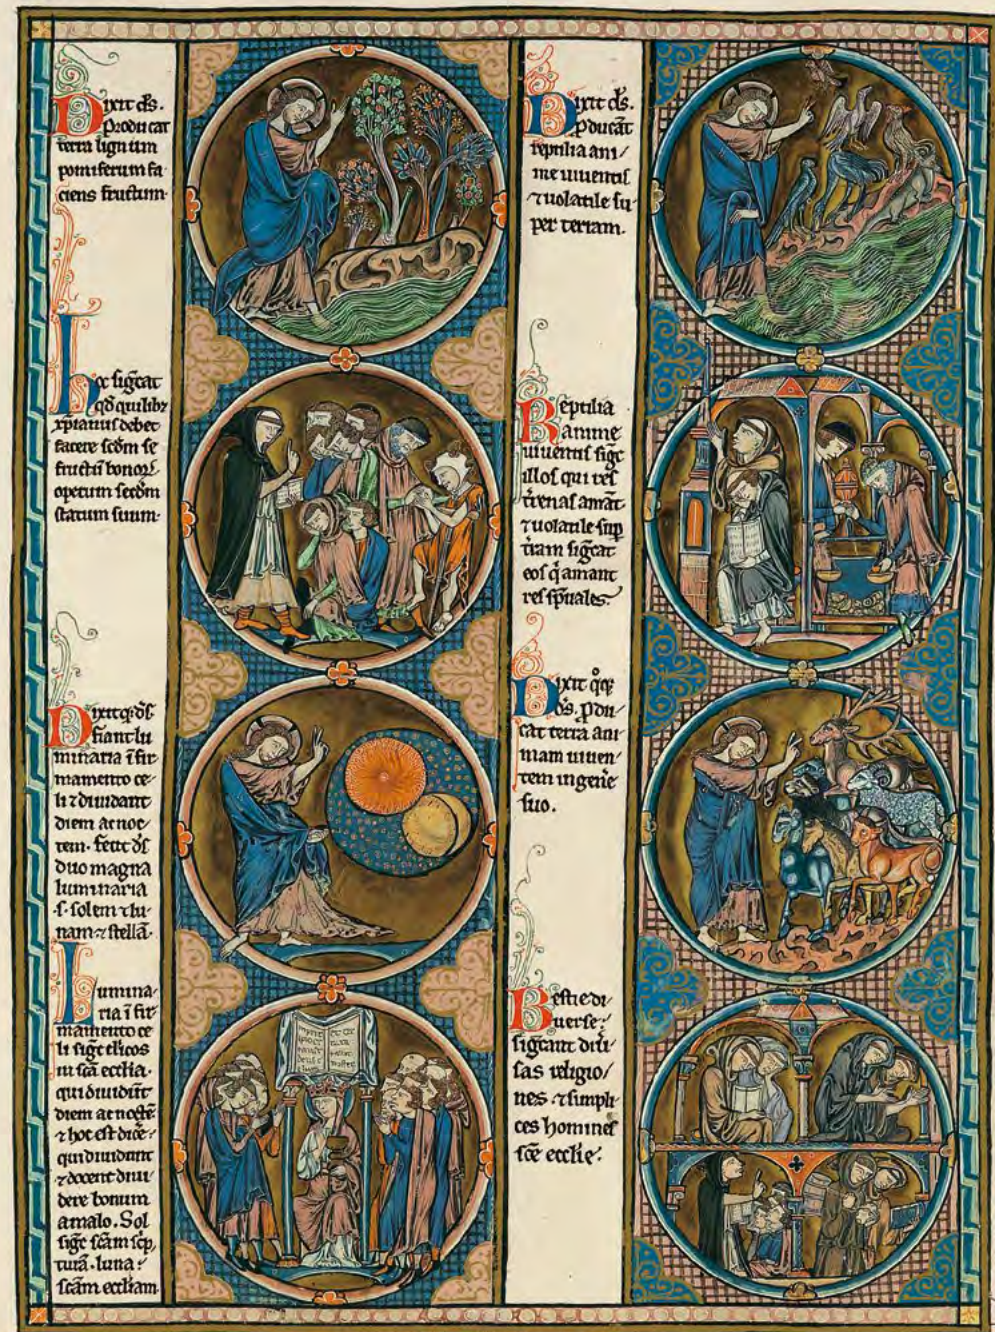 Dixit dñs.
Producat
terra lignum
pomiferum fa
ciens fructum.
hoc sigcat
qd quilibȝ
xpianus debet
facere scdm se
fructus bonoꝝ
operum secdm
statum suum.
Dixit qꝫ ds
fiant lu
minaria ī fir
mamento ce
li ⁊ diuidant
diem ac noc
tem. fecit ds
duo magna
luminaria
.s. solem ⁊ lu
nam ⁊ stellā.
Lumina
ria ī fir
mamento ce
li sigt clicos
in scā ecclia.
qui diuidūt
diem ac noctē
⁊ hoc est dicē.
qui diuidunt
⁊ docent diui
dere bonum
a malo. Sol
sigc scām scp
turā. luna
scām eccliam.
Dixit dñs.
ꝓducāt
reptilia ani/
me uiuentis
⁊ uolatile su/
per terram.
Reptilia
anime
uiuentis sigt
illos qui res
trenas amāt
⁊ uolatile sup
tram sigcat
eos q̇ amant
res spuales.
Dixit qꝫ
ds. ꝓdu/
cat terra ani/
mam uiuen/
tem in genēe
suo.
Bestie di/
uerse.
sigcant diu/
sas religio/
nes ⁊ simpli/
ces homines
scē ecclie.